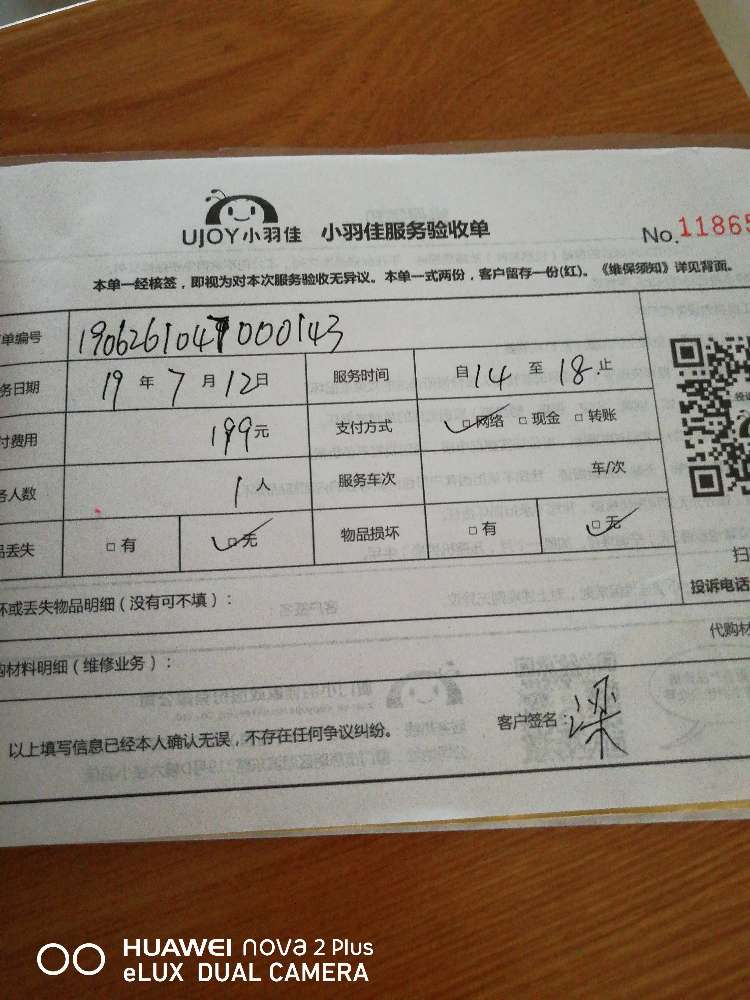 UJOY小羽佳 小羽佳服务验收单 No.11865
本单一经核签，即视为对本次服务验收无异议。本单一式两份，客户留存一份(红)。《维保须知》详见背面。
单编号 190626104 000143
务日期 19 年 7 月 12日 服务时间 自14 至 18 止
付费用 199元 支付方式 网络 现金 转账
务人数 1人 服务车次 车/次
品丢失 有 无 物品损坏 有 无
坏或丢失物品明细（没有可不填）：
扫
投诉电话
购材料明细（维修业务）： 代购材
以上填写信息已经本人确认无误，不存在任何争议纠纷。 客户签名：梁
HUAWEI nova 2 Plus
eLUX DUAL CAMERA